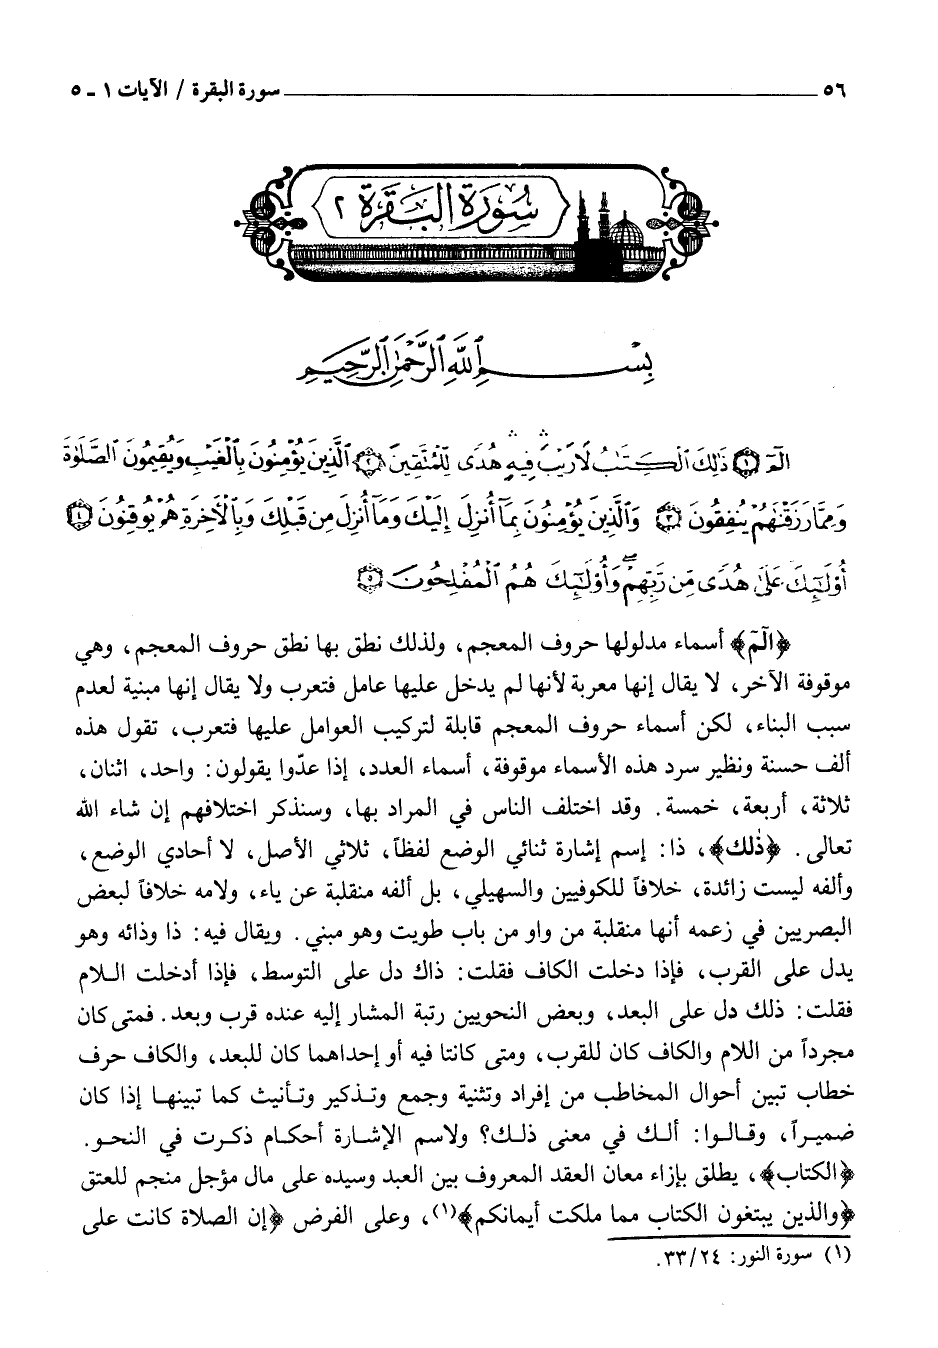 ٥٦ سورة البقرة / الآيات ١ ـ ٥
سُورَةُ البَقَرَةِ ٢
بِسْمِ ٱللَّهِ ٱلرَّحْمَٰنِ ٱلرَّحِيمِ
الٓمٓ ۝١ ذَٰلِكَ ٱلْكِتَٰبُ لَا رَيْبَ ۛ فِيهِ ۛ هُدًى لِّلْمُتَّقِينَ ۝٢ ٱلَّذِينَ يُؤْمِنُونَ بِٱلْغَيْبِ وَيُقِيمُونَ ٱلصَّلَوٰةَ
وَمِمَّا رَزَقْنَٰهُمْ يُنفِقُونَ ۝٣ وَٱلَّذِينَ يُؤْمِنُونَ بِمَآ أُنزِلَ إِلَيْكَ وَمَآ أُنزِلَ مِن قَبْلِكَ وَبِٱلْأَخِرَةِ هُمْ يُوقِنُونَ ۝٤
أُو۟لَٰٓئِكَ عَلَىٰ هُدًى مِّن رَّبِّهِمْ ۖ وَأُو۟لَٰٓئِكَ هُمُ ٱلْمُفْلِحُونَ ۝٥
﴿الٓمٓ﴾ أسماء مدلولها حروف المعجم، ولذلك نطق بها نطق حروف المعجم، وهي
موقوفة الآخر، لا يقال إنها معربة لأنها لم يدخل عليها عامل فتعرب ولا يقال إنها مبنية لعدم
سبب البناء، لكن أسماء حروف المعجم قابلة لتركيب العوامل عليها فتعرب، تقول هذه
ألف حسنة ونظير سرد هذه الأسماء موقوفة، أسماء العدد، إذا عدّوا يقولون: واحد، اثنان،
ثلاثة، أربعة، خمسة. وقد اختلف الناس في المراد بها، وسنذكر اختلافهم إن شاء الله
تعالى. ﴿ذٰلك﴾، ذا: إسم إشارة ثنائي الوضع لفظاً، ثلاثي الأصل، لا أحادي الوضع،
وألفه ليست زائدة، خلافاً للكوفيين والسهيلي، بل ألفه منقلبة عن ياء، ولامه خلافاً لبعض
البصريين في زعمه أنها منقلبة من واو من باب طويت وهو مبني. ويقال فيه: ذا وذائه وهو
يدل على القرب، فإذا دخلت الكاف فقلت: ذاك دل على التوسط، فإذا أدخلت اللام
فقلت: ذلك دل على البعد، وبعض النحويين رتبة المشار إليه عنده قرب وبعد. فمتى كان
مجرداً من اللام والكاف كان للقرب، ومتى كانتا فيه أو إحداهما كان للبعد، والكاف حرف
خطاب تبين أحوال المخاطب من إفراد وتثنية وجمع وتذكير وتأنيث كما تبينها إذا كان
ضميراً، وقالوا: ألك في معنى ذلك؟ ولاسم الإشارة أحكام ذكرت في النحو.
﴿الكتاب﴾، يطلق بإزاء معان العقد المعروف بين العبد وسيده على مال مؤجل منجم للعتق
﴿والذين يبتغون الكتاب مما ملكت أيمانكم﴾(١)، وعلى الفرض ﴿إن الصلاة كانت على
(١) سورة النور: ٣٣/٢٤.